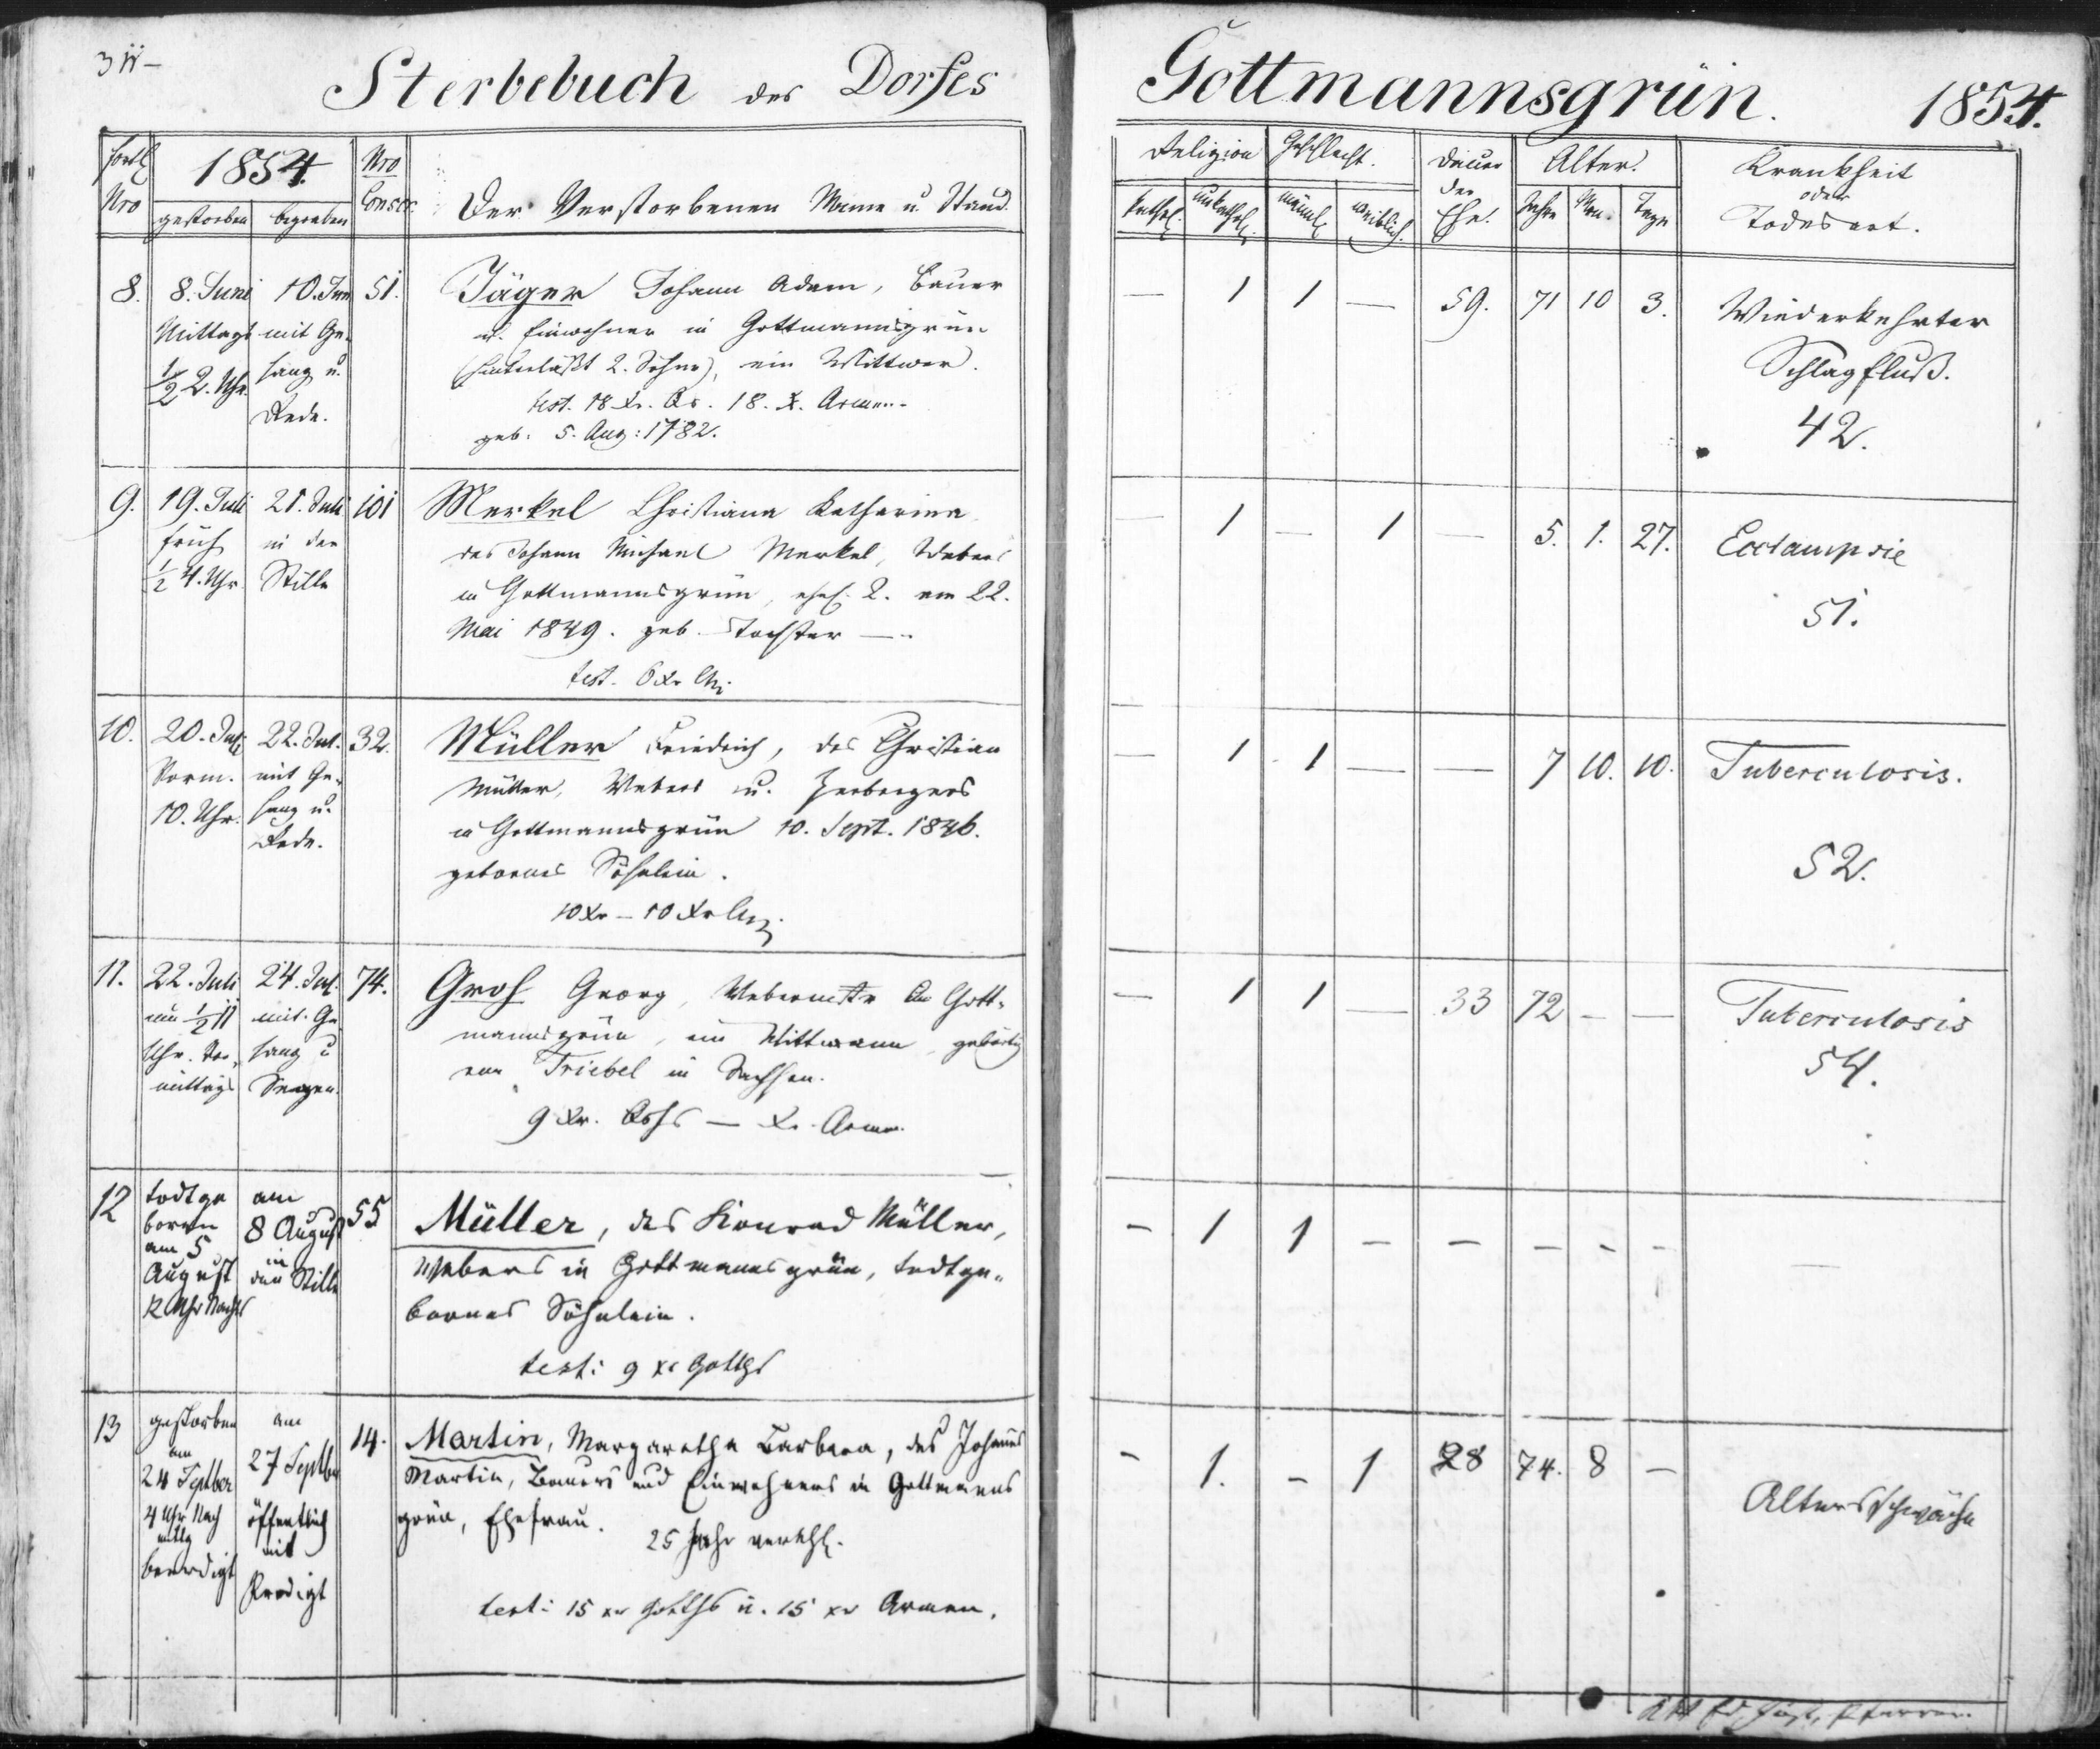 Sterbebuch des Dorfes Gottmannsgrün. 1854.
fortl. Nro
1854.
gestorben begraben
Nro Conscr.
Der Verstorbenen Name u. Stand.
Religion Geschlecht.
kathol. unkathol. männl. weiblich.
Dauer der Ehe.
Alter.
Jahre Mon. Tage
Krankheit
oder
Todesart.
8.
8. Juni
Mittags
1/2 2. Uhr
10. Jun
mit Ge-
sang u.
Rede.
51.
Jäger Johann Adam, Bauer
u. Einwohner in Gottmannsgrün
(hinterläßt 2. Söhne), ein Wittwer.
test. 18 Xr. 18. X. Armen.
geb. 5. Aug: 1782.
— 1 1 — 59. 71 10 3.
Wiederkehrter
Schlagfluß.
42.
9.
19. Juli
früh
1/2 4. Uhr
21. Juli
in der
Stille
101
Merkel Christiana Katharina
des Johann Michael Merkel, Webers
in Gottmannsgrün, ehel. 2. am 22.
Mai 1849. geb. Tochter —
test. 6 Xr
— 1 — 1 — 5. 1. 27.
Ecclampsie
51.
10.
20. Juli
Vorm.
10. Uhr.
22. Jul.
mit Ge-
sang u.
Rede.
32.
Müller Friedrich, des Christian
Müller, Webers u. Herbergers
in Gottmannsgrün 10. Sept. 1846.
gebornes Söhnlein.
10 Xr — 10 Xr
— 1 1 — — 7 10. 10.
Tuberculosis.
52.
11.
22. Juli
um 1/2 11
Uhr. Vor-
mittags
24. Jul.
mit Ge
sang u
Segen.
74.
Groh Georg, Webermstr in Gott-
mannsgrün, ein Wittmann, gebürtig
von Triebel in Sachsen.
9 Xr. — Xr. Armen.
— 1 1 — 33 72 — —
Tuberculosis
54.
12
todtge
boren
am 5
August
12 Uhr Nachts
am
8 August
in
der Stille
55
Müller, des Konrad Müller,
Webers in Gottmannsgrün, todtge-
bornes Söhnlein.
test: 9 xr Gotths
— 1 1 — — — — —
—
13
gestorben
am
24 Septber
4 Uhr Nach
mittg
beerdigt
am
27 Septber
öffentlich
mit
Predigt
14.
Martin, Margaretha Barbara, des Johannes
Martin, Bauers und Einwohners in Gottmanns
grün, Ehefrau. 25 Jahr verehl.
test: 15 xr Gotths u. 15 xr Armen.
— 1. — 1 28 74. 8 —
Altersschwäche